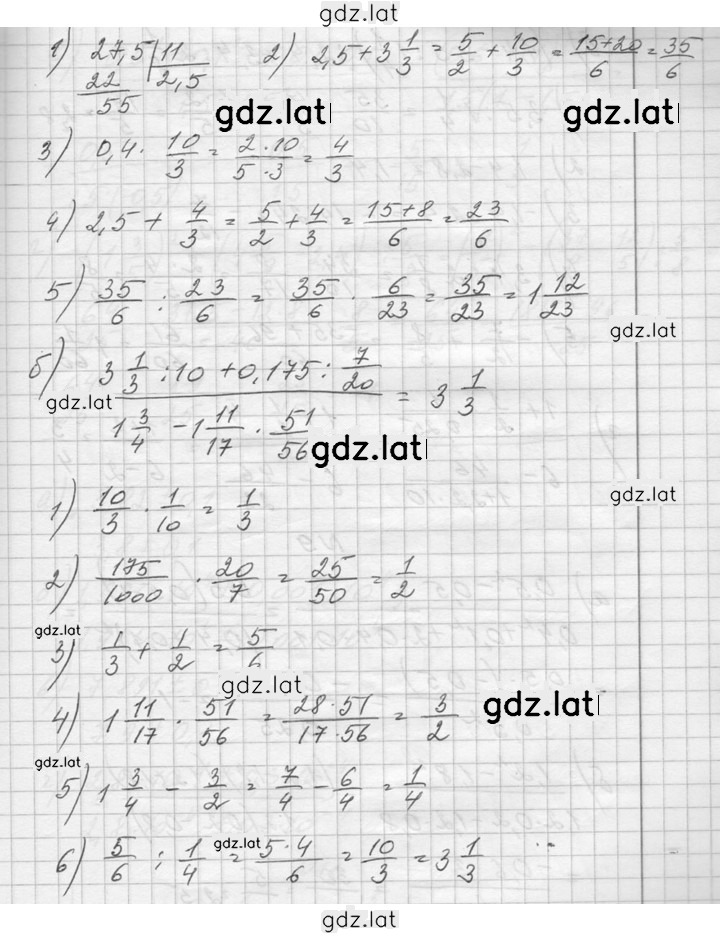 gdz.lat
1) 27,5 | 11
22 2,5
55
2) 2,5 + 3 1/3 = 5/2 + 10/3 = (15+20)/6 = 35/6
gdz.lat
3) 0,4 · 10/3 = (2·10)/(5·3) = 4/3
4) 2,5 + 4/3 = 5/2 + 4/3 = (15+8)/6 = 23/6
5) 35/6 : 23/6 = 35/6 · 6/23 = 35/23 = 1 12/23
gdz.lat
б) (3 1/3 : 10 + 0,175 : 7/20)/(1 3/4 - 1 11/17 · 51/56) = 3 1/3
gdz.lat
gdz.lat
gdz.lat
1) 10/3 · 1/10 = 1/3
2) 175/1000 · 20/7 = 25/50 = 1/2
gdz.lat
3) 1/3 + 1/2 = 5/6
gdz.lat
4) 1 11/17 · 51/56 = (28·51)/(17·56) = 3/2
gdz.lat
gdz.lat
5) 1 3/4 - 3/2 = 7/4 - 6/4 = 1/4
gdz.lat
6) 5/6 : 1/4 = (5·4)/6 = 10/3 = 3 1/3
gdz.lat